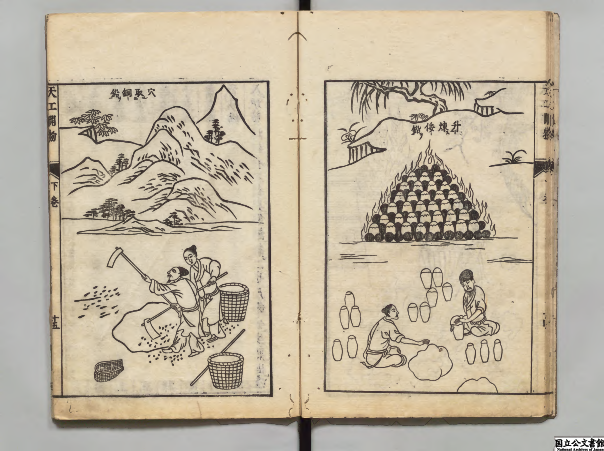 升煉倭鉛
穴取銅鉛
天工開物
下卷
国立公文書館
National Archives of Japan